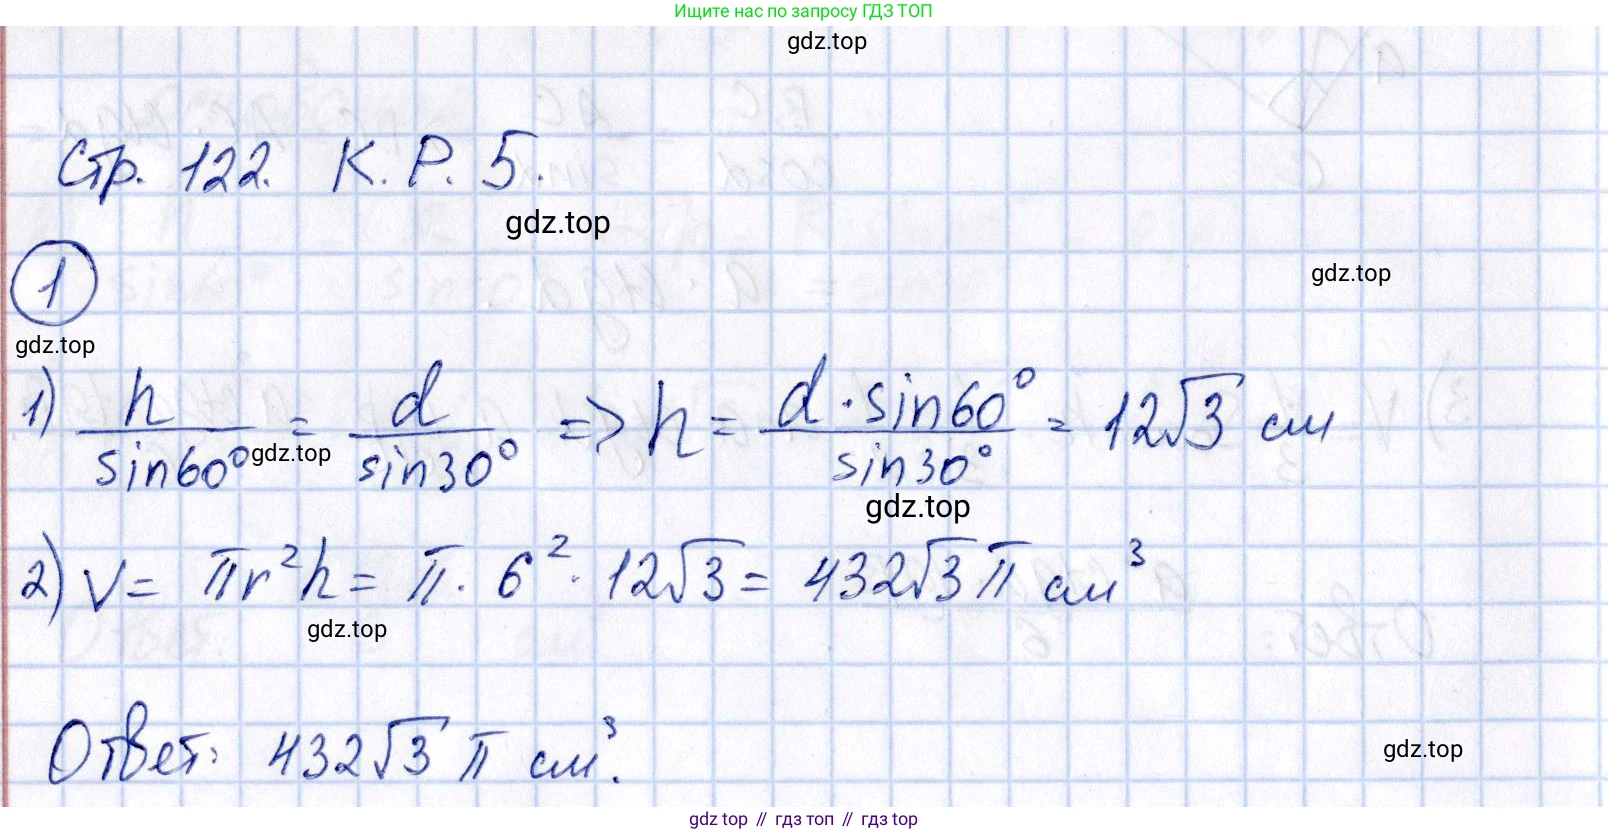 Ищите нас по запросу ГДЗ ТОП
gdz.top
Стр. 122. К.Р. 5.
gdz.top
1
gdz.top
gdz.top
1) h/sin60° = d/sin30° => h = d·sin60°/sin30° = 12√3 см
gdz.top
gdz.top
2) V = πr²h = π · 6² · 12√3 = 432√3 π см³
gdz.top
Ответ: 432√3 π см³.
gdz.top
gdz top // гдз топ // гдз top